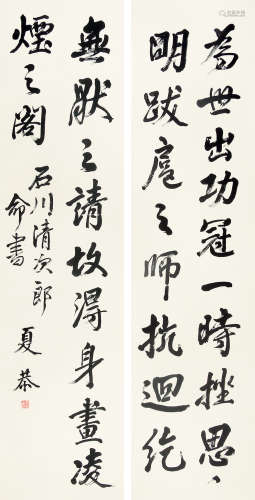 為世出功冠一時挫思〻
明跋扈之師抗迴紇
無厭之請故得身畫凌
煙之閣
石川清次郎
命書
夏恭